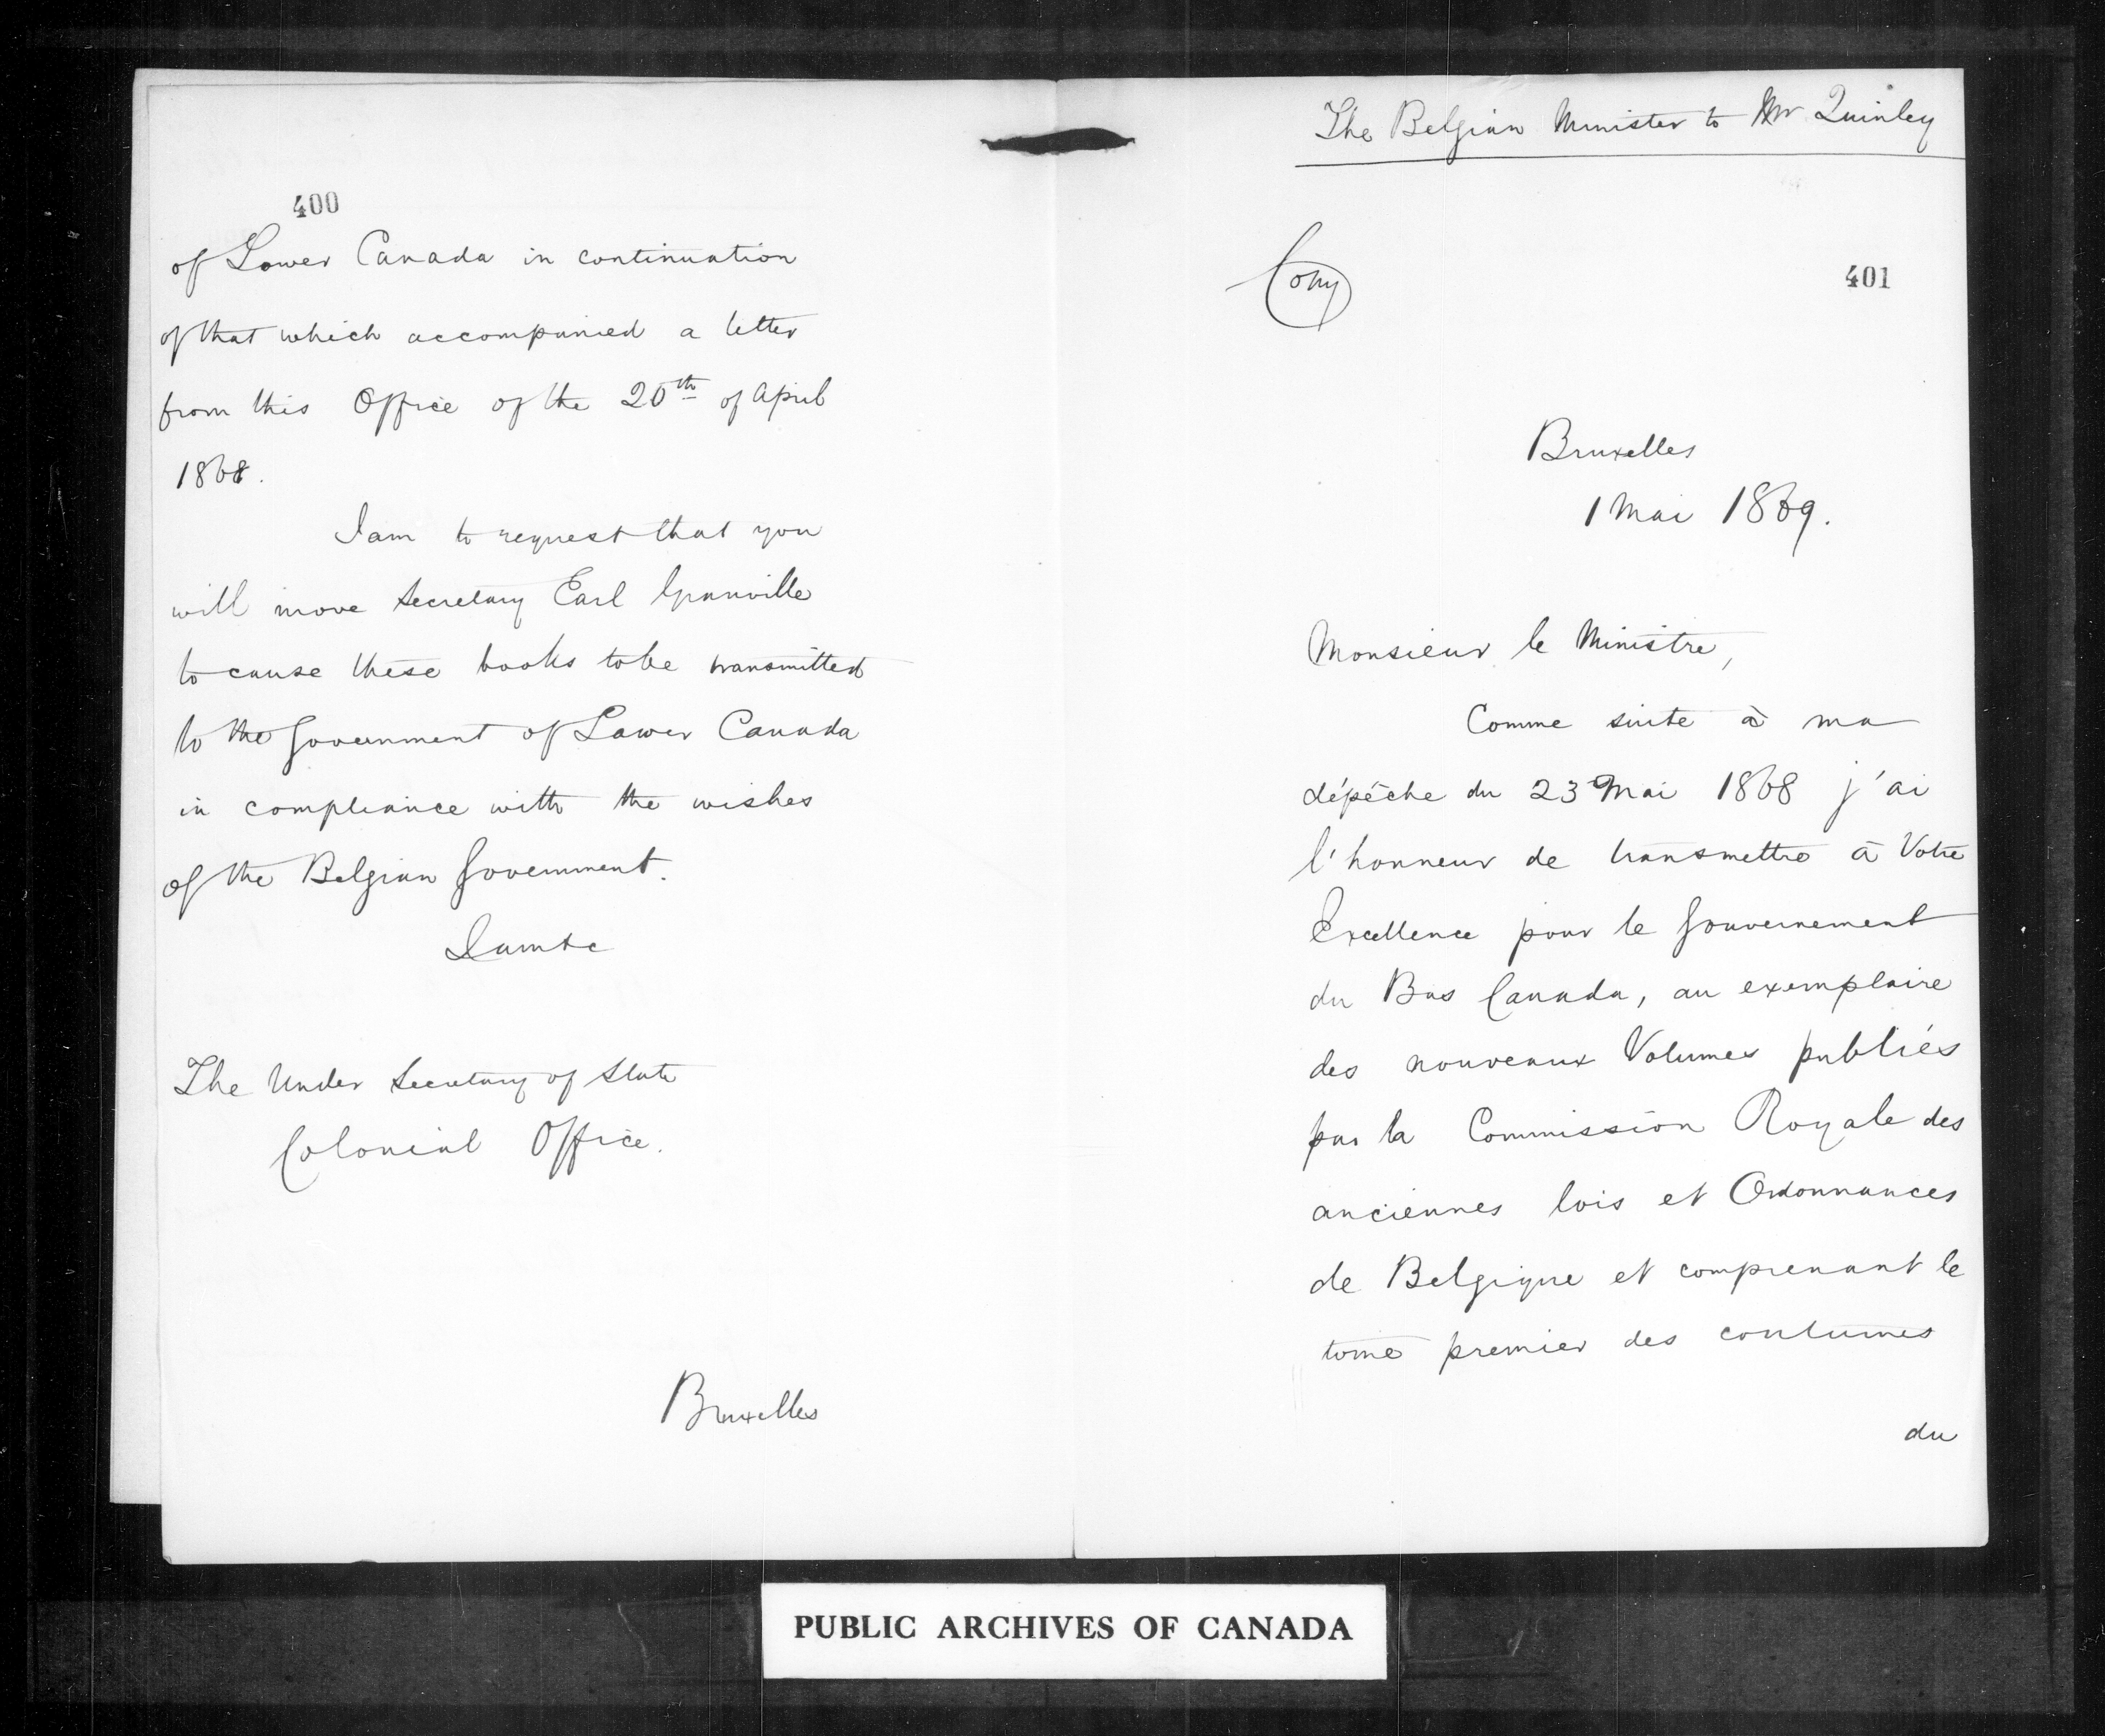 400
of Lower Canada in continuation
of that which accompanied a letter
from this Office of the 20th of April
1868.
I am to request that you
will move Secretary Earl Granville
to cause these books to be transmitted
to the Government of Lower Canada
in compliance with the wishes
of the Belgian Government.
I am &c
The Under Secretary of State
Colonial Office.
Bruxelles
The Belgian Minister to Mr Quinley
Copy
401
Bruxelles
1 Mai 1869.
Monsieur le Ministre,
Comme suite à ma
dépéche du 23 Mai 1868 j'ai
l'honneur de transmettre à Votre
Excellence pour le Gouvernement
du Bas Canada, au exemplaire
des nouveaux Volumes publiés
par la Commission Royale des
anciennes lois et Ordonnances
de Belgique et comprenant le
tome premier des coutumes
du
PUBLIC ARCHIVES OF CANADA